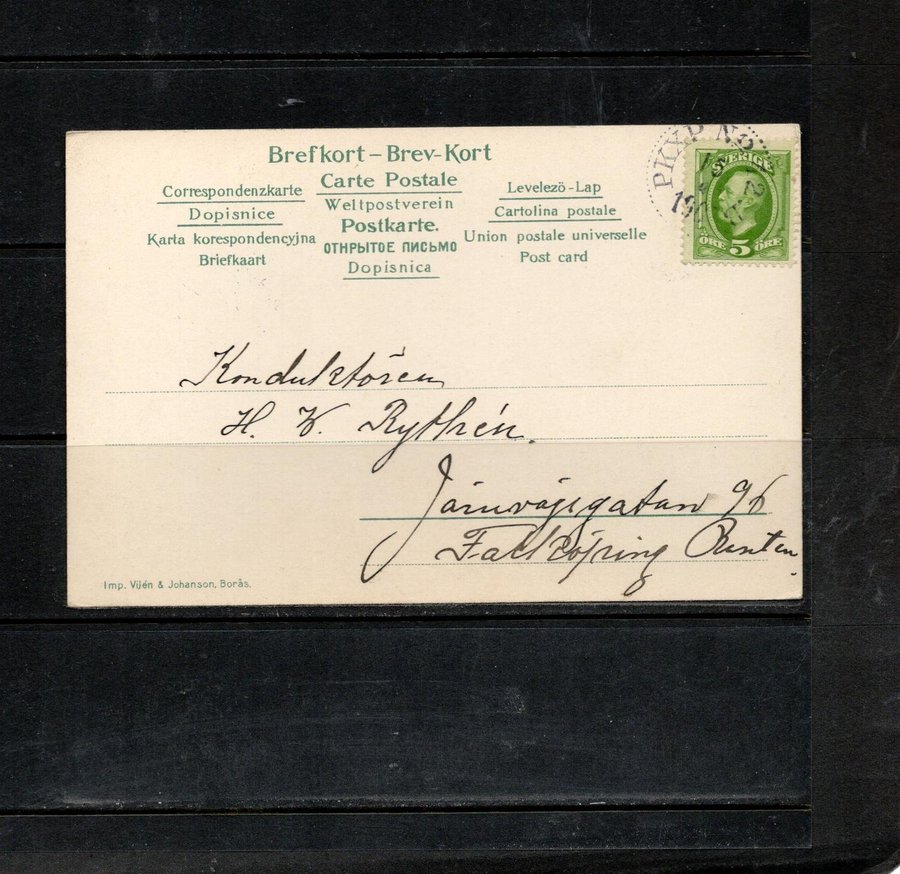 Brefkort – Brev-Kort
Correspondenzkarte
Dopisnice
Karta korespondencyjna
Briefkaart
Carte Postale
Weltpostverein
Postkarte.
ОТКРЫТОЕ ПИСЬМО
Dopisnica
Levelezö-Lap
Cartolina postale
Union postale universelle
Post card
PKXP No
SVERIGE
ÖRE 5 ÖRE
Konduktören
H. W. Rythén.
Järnvägsgatan 96
Falköping Ranten.
Imp. Vijén & Johanson, Borås.